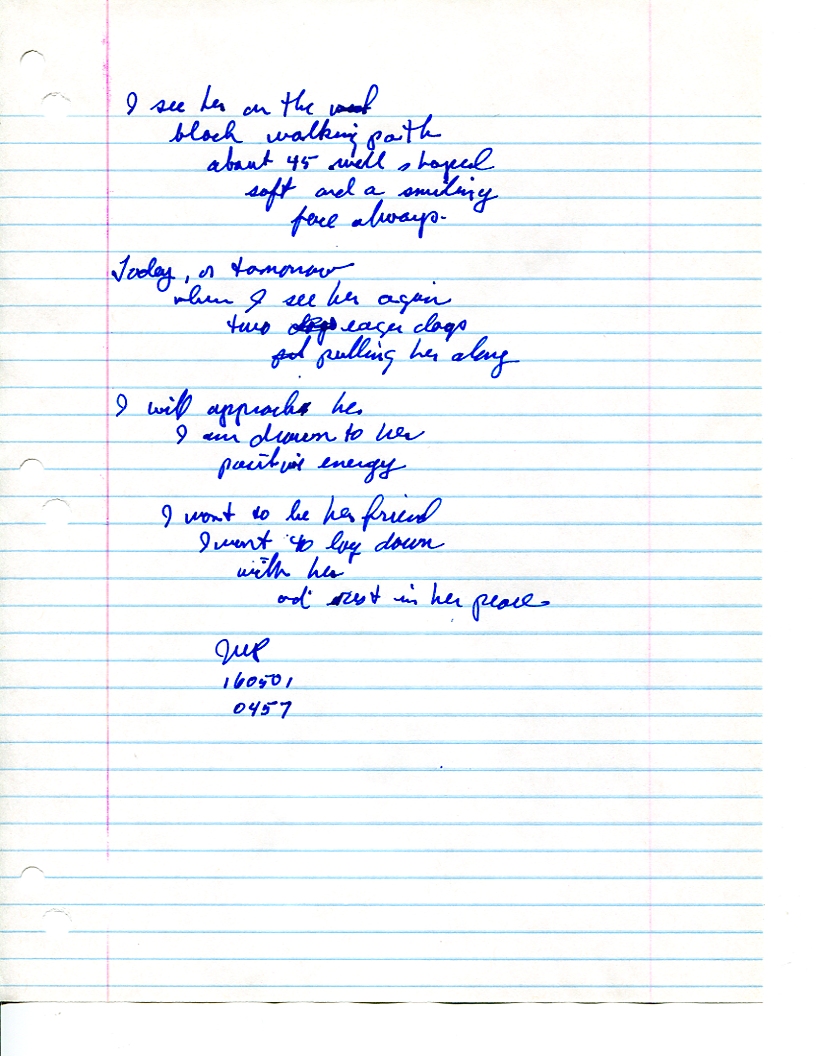 I see her on the
black walking path
about 45 well shaped
soft and a smiling
face always.
Today, or tomorrow
when I see her again
two eager dogs
pulling her along
I will approach her
I am drawn to her
positive energy
I want to be her friend
I want to lay down
with her
and rest in her peace
160501
0457